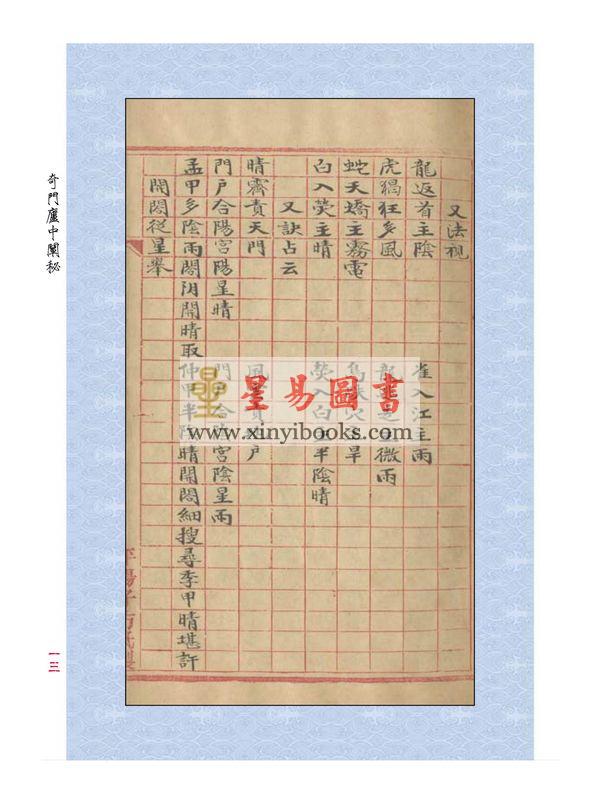 又法視
龍返首主陰 雀入江主雨
虎猖狂多風 龍 主微雨
蛇夭矯主霧電 鳥跌穴主旱
白入熒主晴 熒入白主半陰晴
又訣占云
晴霽責天門 風 責 戶
門戶合陽宮陽星晴 門戶合陰宮陰星雨
孟甲多陰雨閣阴開晴取仲甲半陰晴開閣細搜尋季甲晴堪許
開閣從星舉
奇門廬中闡秘
一三
星易圖書
www.xinyibooks.com